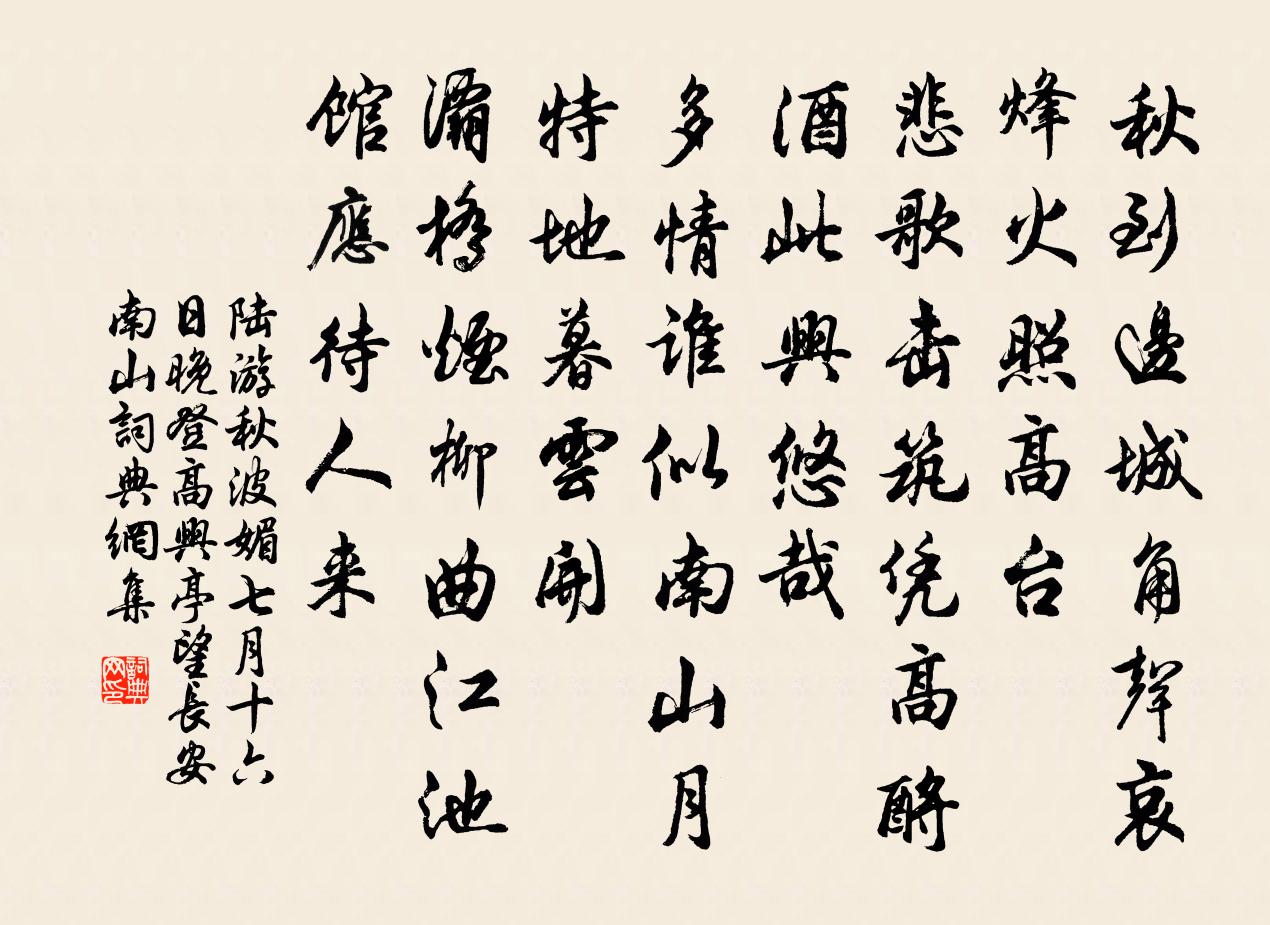 秋到邊城角聲哀
烽火照高台
悲歌击筑凭高酹
酒此興悠哉
多情谁似南山月
特地暮雲開
灞橋煙柳曲江池
馆應待人来
陆游秋波媚七月十六
日晚登高興亭望長安
南山詞典網集
詞典网印